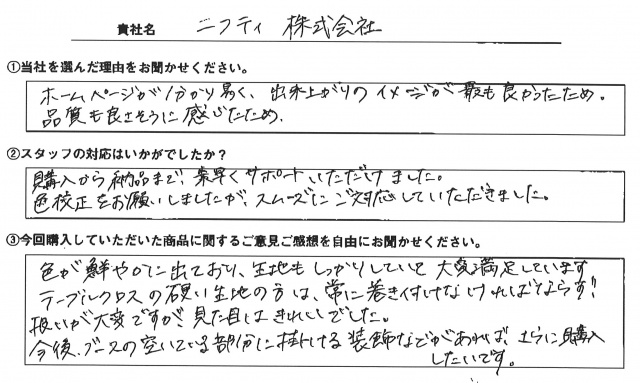 貴社名 ニフティ 株式会社
①当社を選んだ理由をお聞かせください。
ホームページが分かり易く、出来上がりのイメージが最も良かったため。
品質も良さそうに感じたため。
②スタッフの対応はいかがでしたか？
購入から納品まで、素早くサポートいただけました。
色校正をお願いしましたが、スムーズにご対応していただきました。
③今回購入していただいた商品に関するご意見ご感想を自由にお聞かせください。
色が鮮やかに出ており、生地もしっかりしていて大変満足しています
テーブルクロスの硬い生地の方は、常に巻き付けなければならず、
扱いが大変ですが、見た目はきれいでした。
今後、ブースの空いている部分に掛ける装飾などがあれば、さらに購入
したいです。